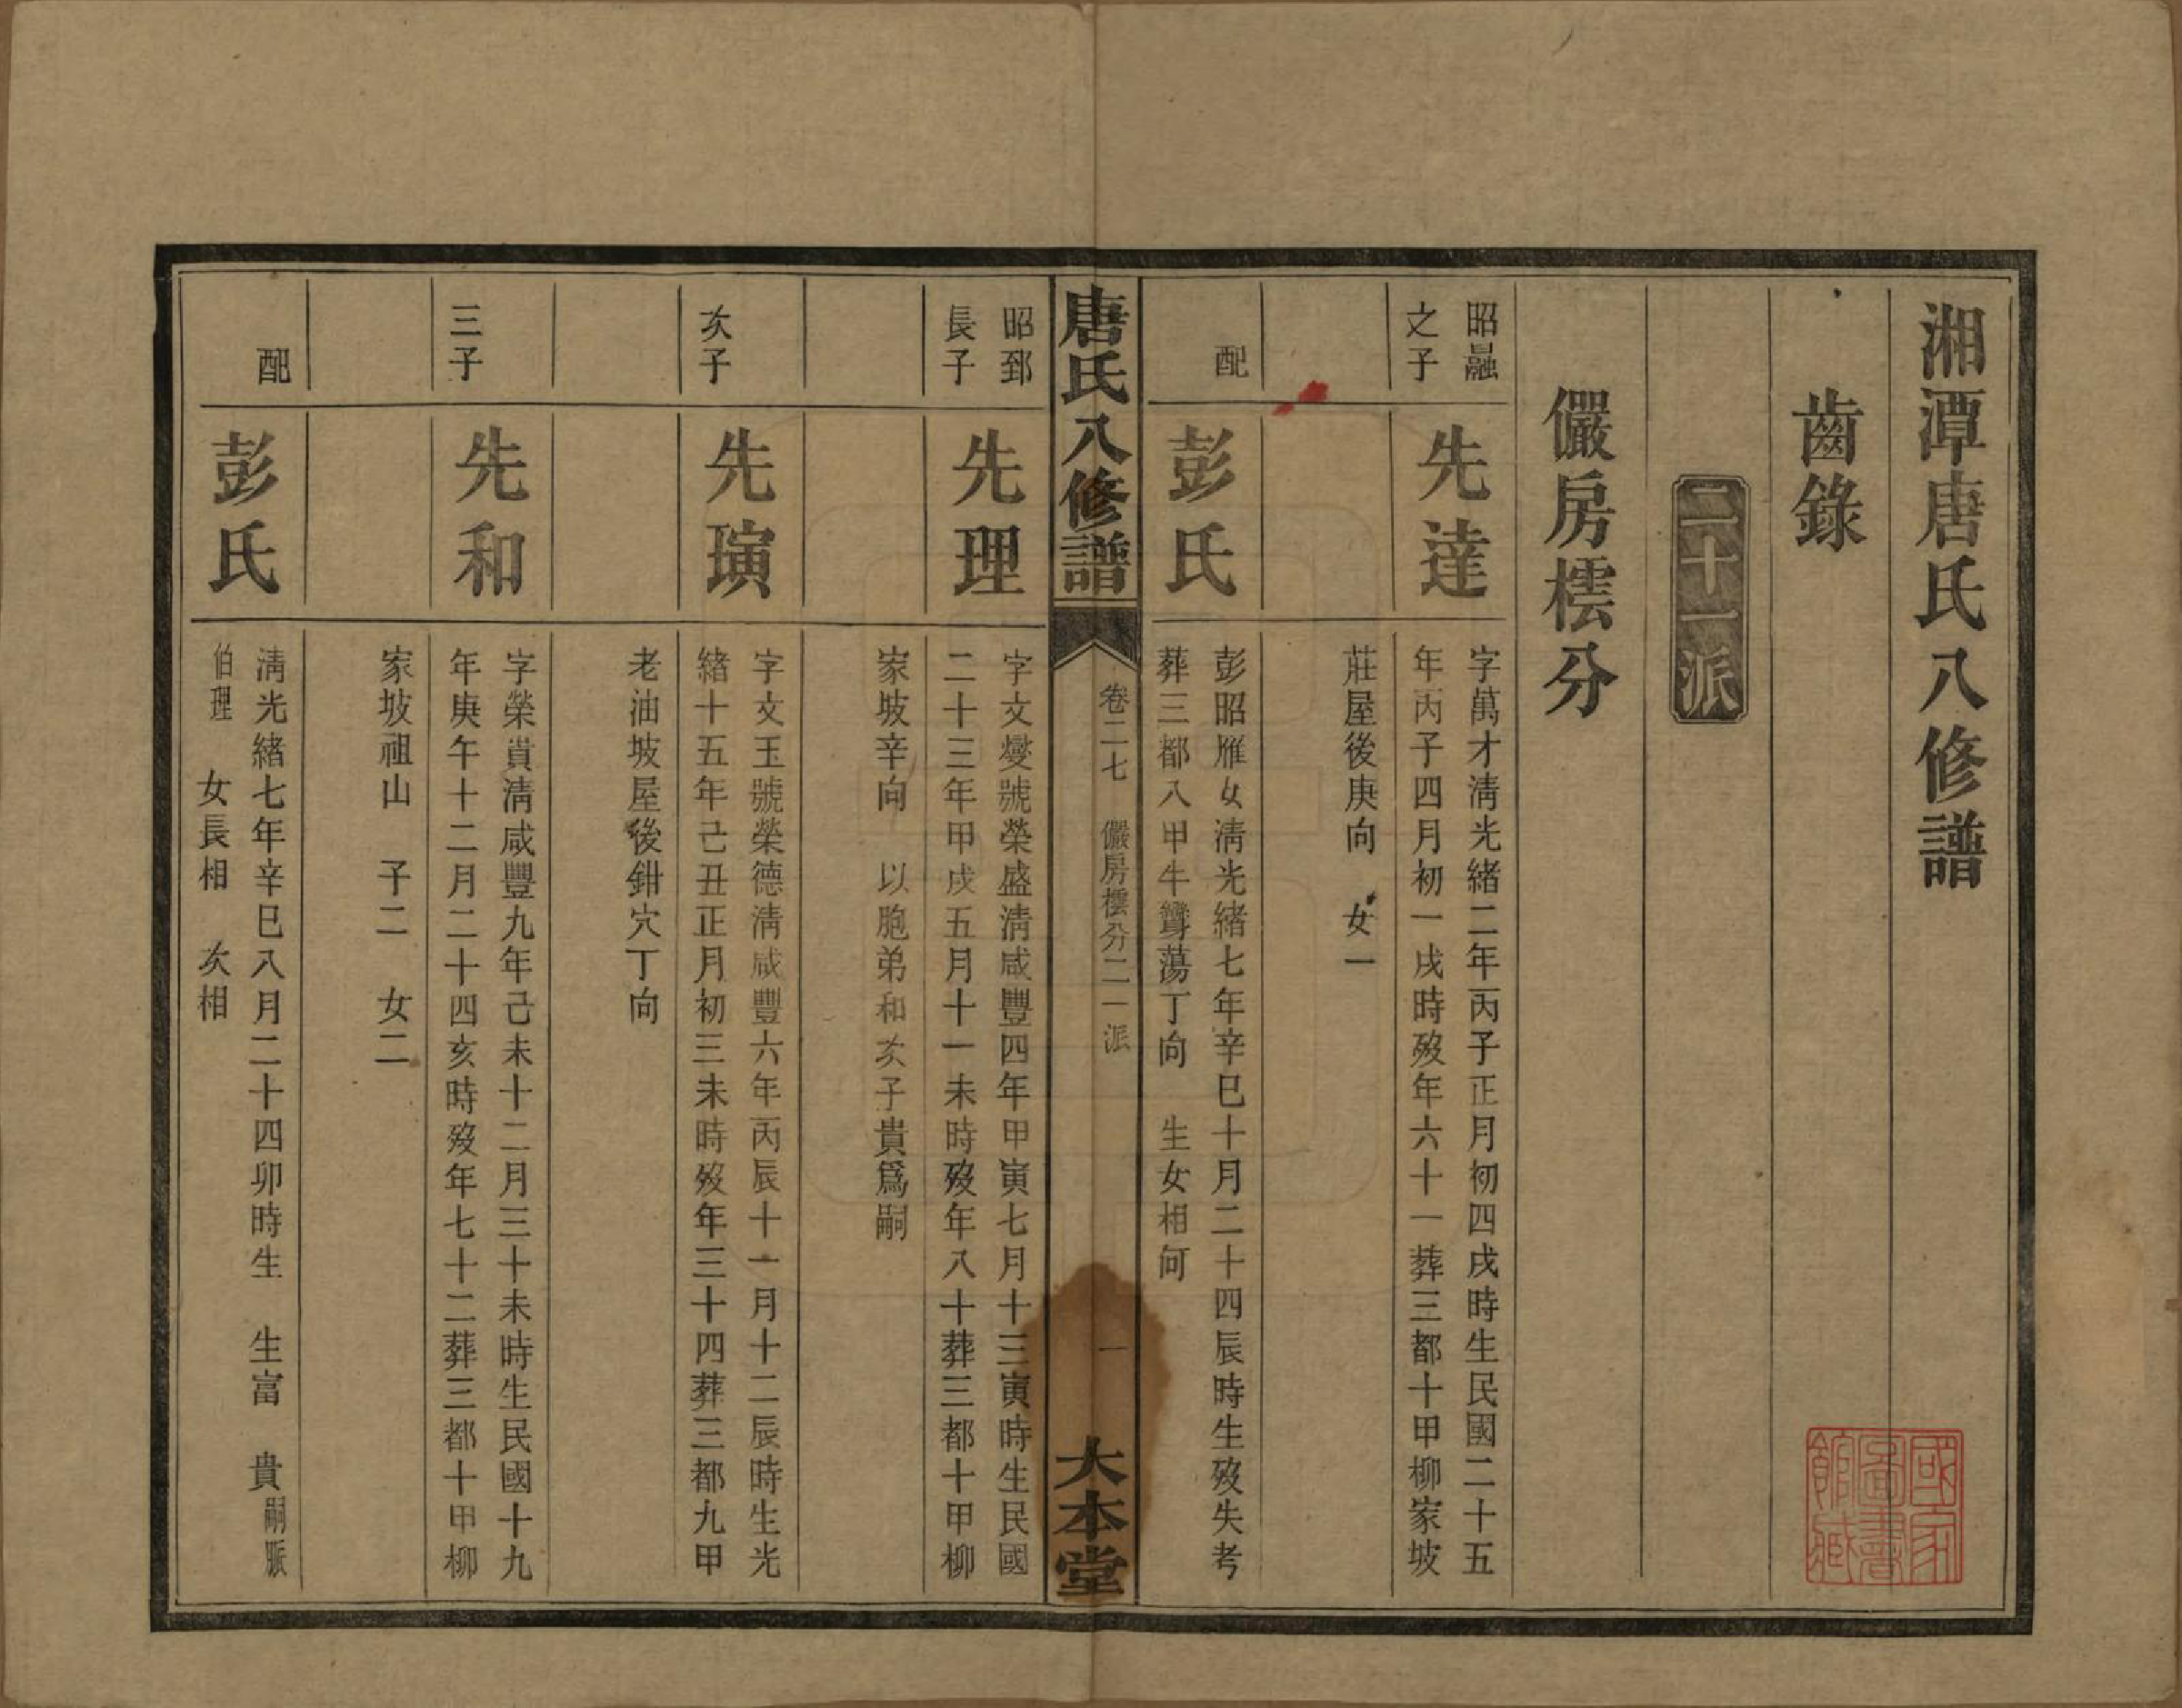 湘潭唐氏八修譜
齒錄
二十一派
儼房橒分
昭融
之子
先達
字萬才清光緒二年丙子正月初四戌時生民國二十五
年丙子四月初一戌時歿年六十一葬三都十甲柳家坡
莊屋後庚向 女一
配
彭氏
彭昭雁女清光緒七年辛巳十月二十四辰時生歿失考
葬三都八甲牛彎蕩丁向 生女相何
唐氏八修譜
卷二七 儼房橒分二一派
一
大本堂
昭郅
長子
先理
字文燮號榮盛清咸豐四年甲寅七月十三寅時生民國
二十三年甲戌五月十一未時歿年八十葬三都十甲柳
家坡辛向 以胞弟和次子貴爲嗣
次子
先璜
字文玉號榮德清咸豐六年丙辰十一月十二辰時生光
緒十五年己丑正月初三未時歿年三十四葬三都九甲
老油坡屋後鉗穴丁向
三子
先和
字榮貴清咸豐九年己未十二月三十未時生民國十九
年庚午十二月二十四亥時歿年七十二葬三都十甲柳
家坡祖山 子二 女二
配
彭氏
清光緒七年辛巳八月二十四卯時生 生富 貴嗣脈
伯理 女長相 次相
國家
圖書
館藏